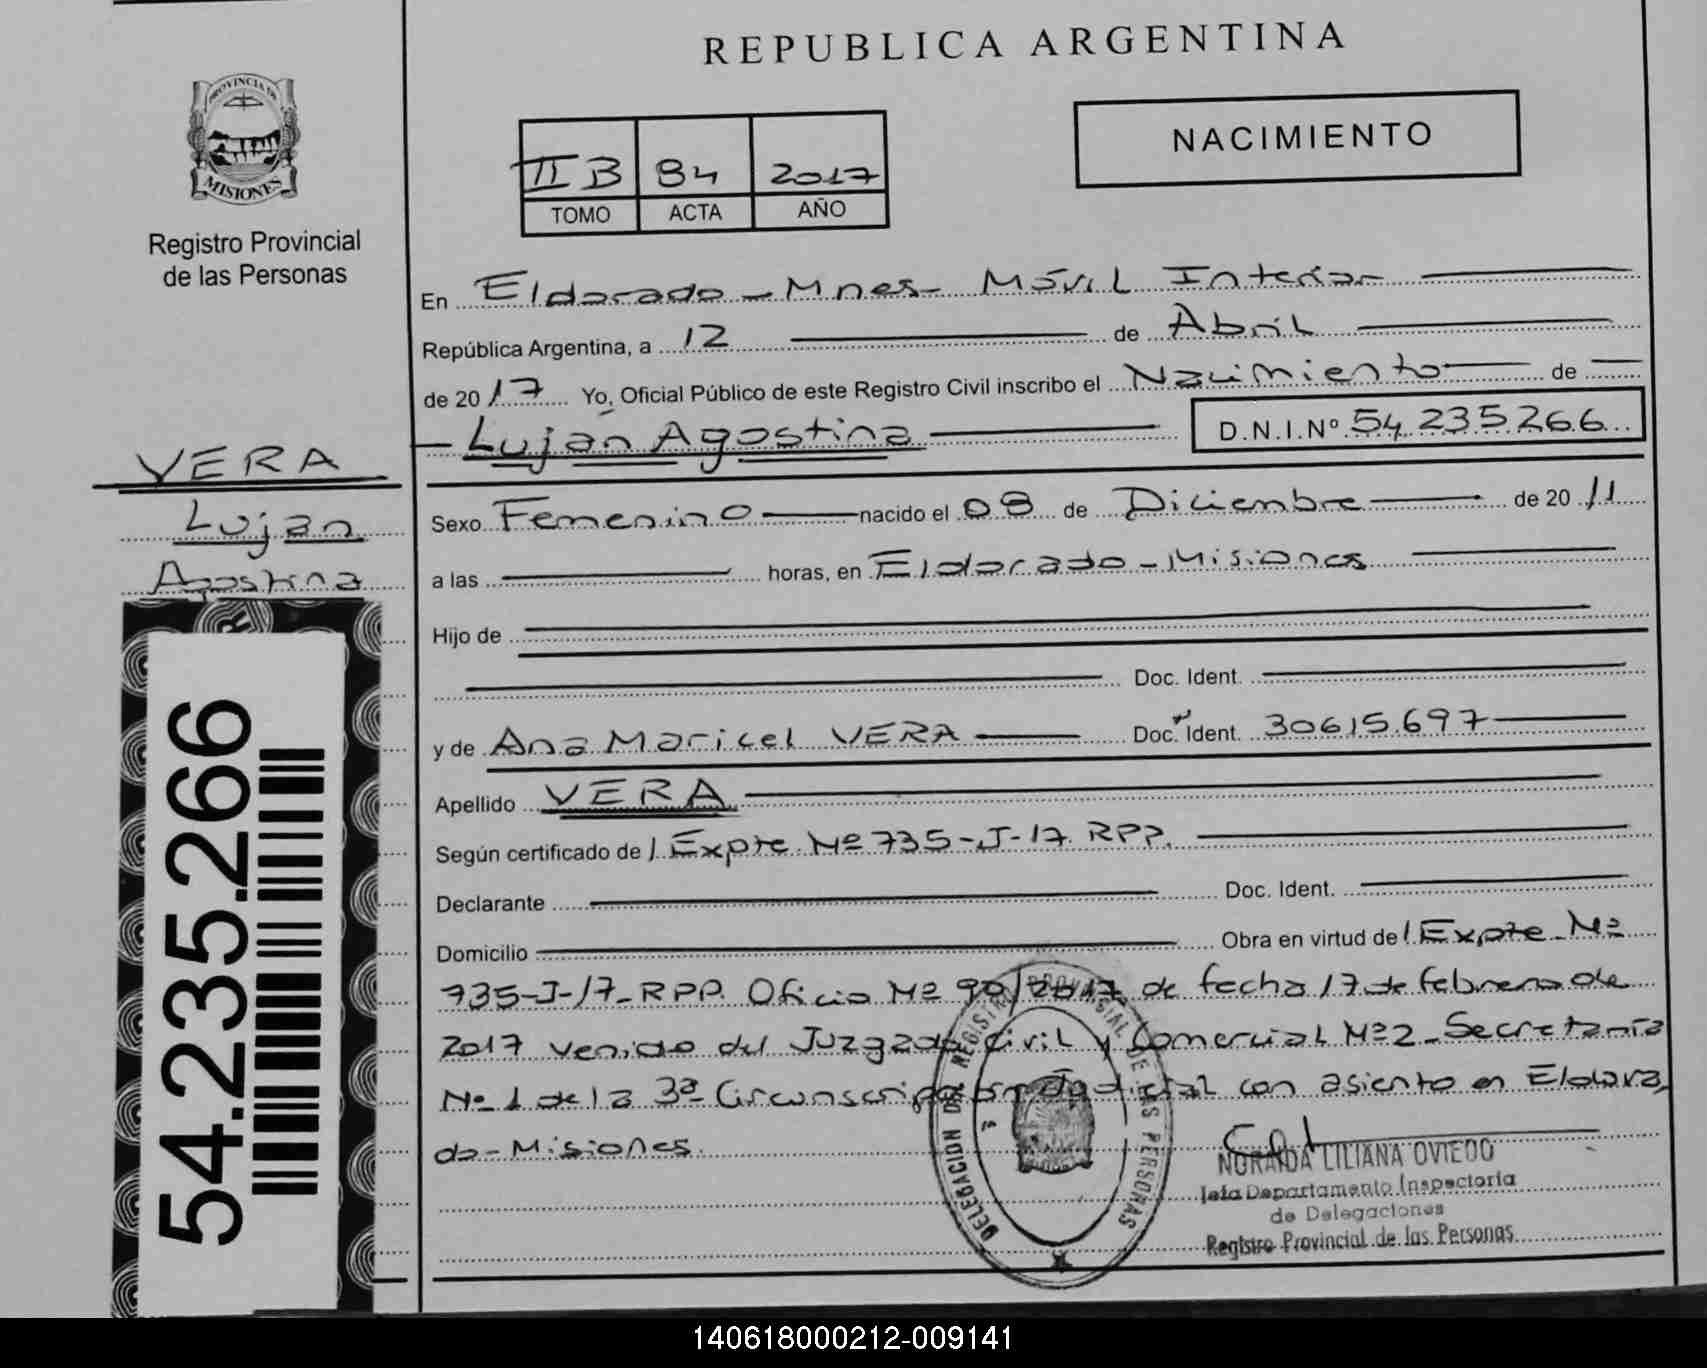 REPUBLICA ARGENTINA
PROVINCIA DE
MISIONES
Registro Provincial
de las Personas
II B 84 2017
TOMO ACTA AÑO
NACIMIENTO
En Eldorado - Mnes - Móvil Interior
República Argentina, a 12 de Abril
de 2017 Yo, Oficial Público de este Registro Civil inscribo el Nacimiento de
Lujan Agostina D.N.I.Nº 54.235.266
VERA
Lujan
Agostina
Sexo Femenino nacido el 08 de Diciembre de 2011
a las horas, en Eldorado - Misiones
Hijo de
Doc. Ident.
y de Ana Maricel VERA Doc. Ident. 30615.697
Apellido VERA
Según certificado de / Expte Nº 735-J-17. RPP.
Declarante Doc. Ident.
Domicilio Obra en virtud de / Expte Nº
735-J-17-RPP. Oficio Nº 90/2017 de fecha 17 de febrero de
2017 venido del Juzgado Civil y Comercial Nº2 - Secretaría
Nº 1 de la 3ª Circunscripción Judicial con asiento en Eldora
do - Misiones.
54.235.266
DELEGACION DEL REGISTRO PROVINCIAL DE LAS PERSONAS
NORAIDA LILIANA OVIEDO
Jefa Departamento Inspectoría
de Delegaciones
Registro Provincial de las Personas
140618000212-009141